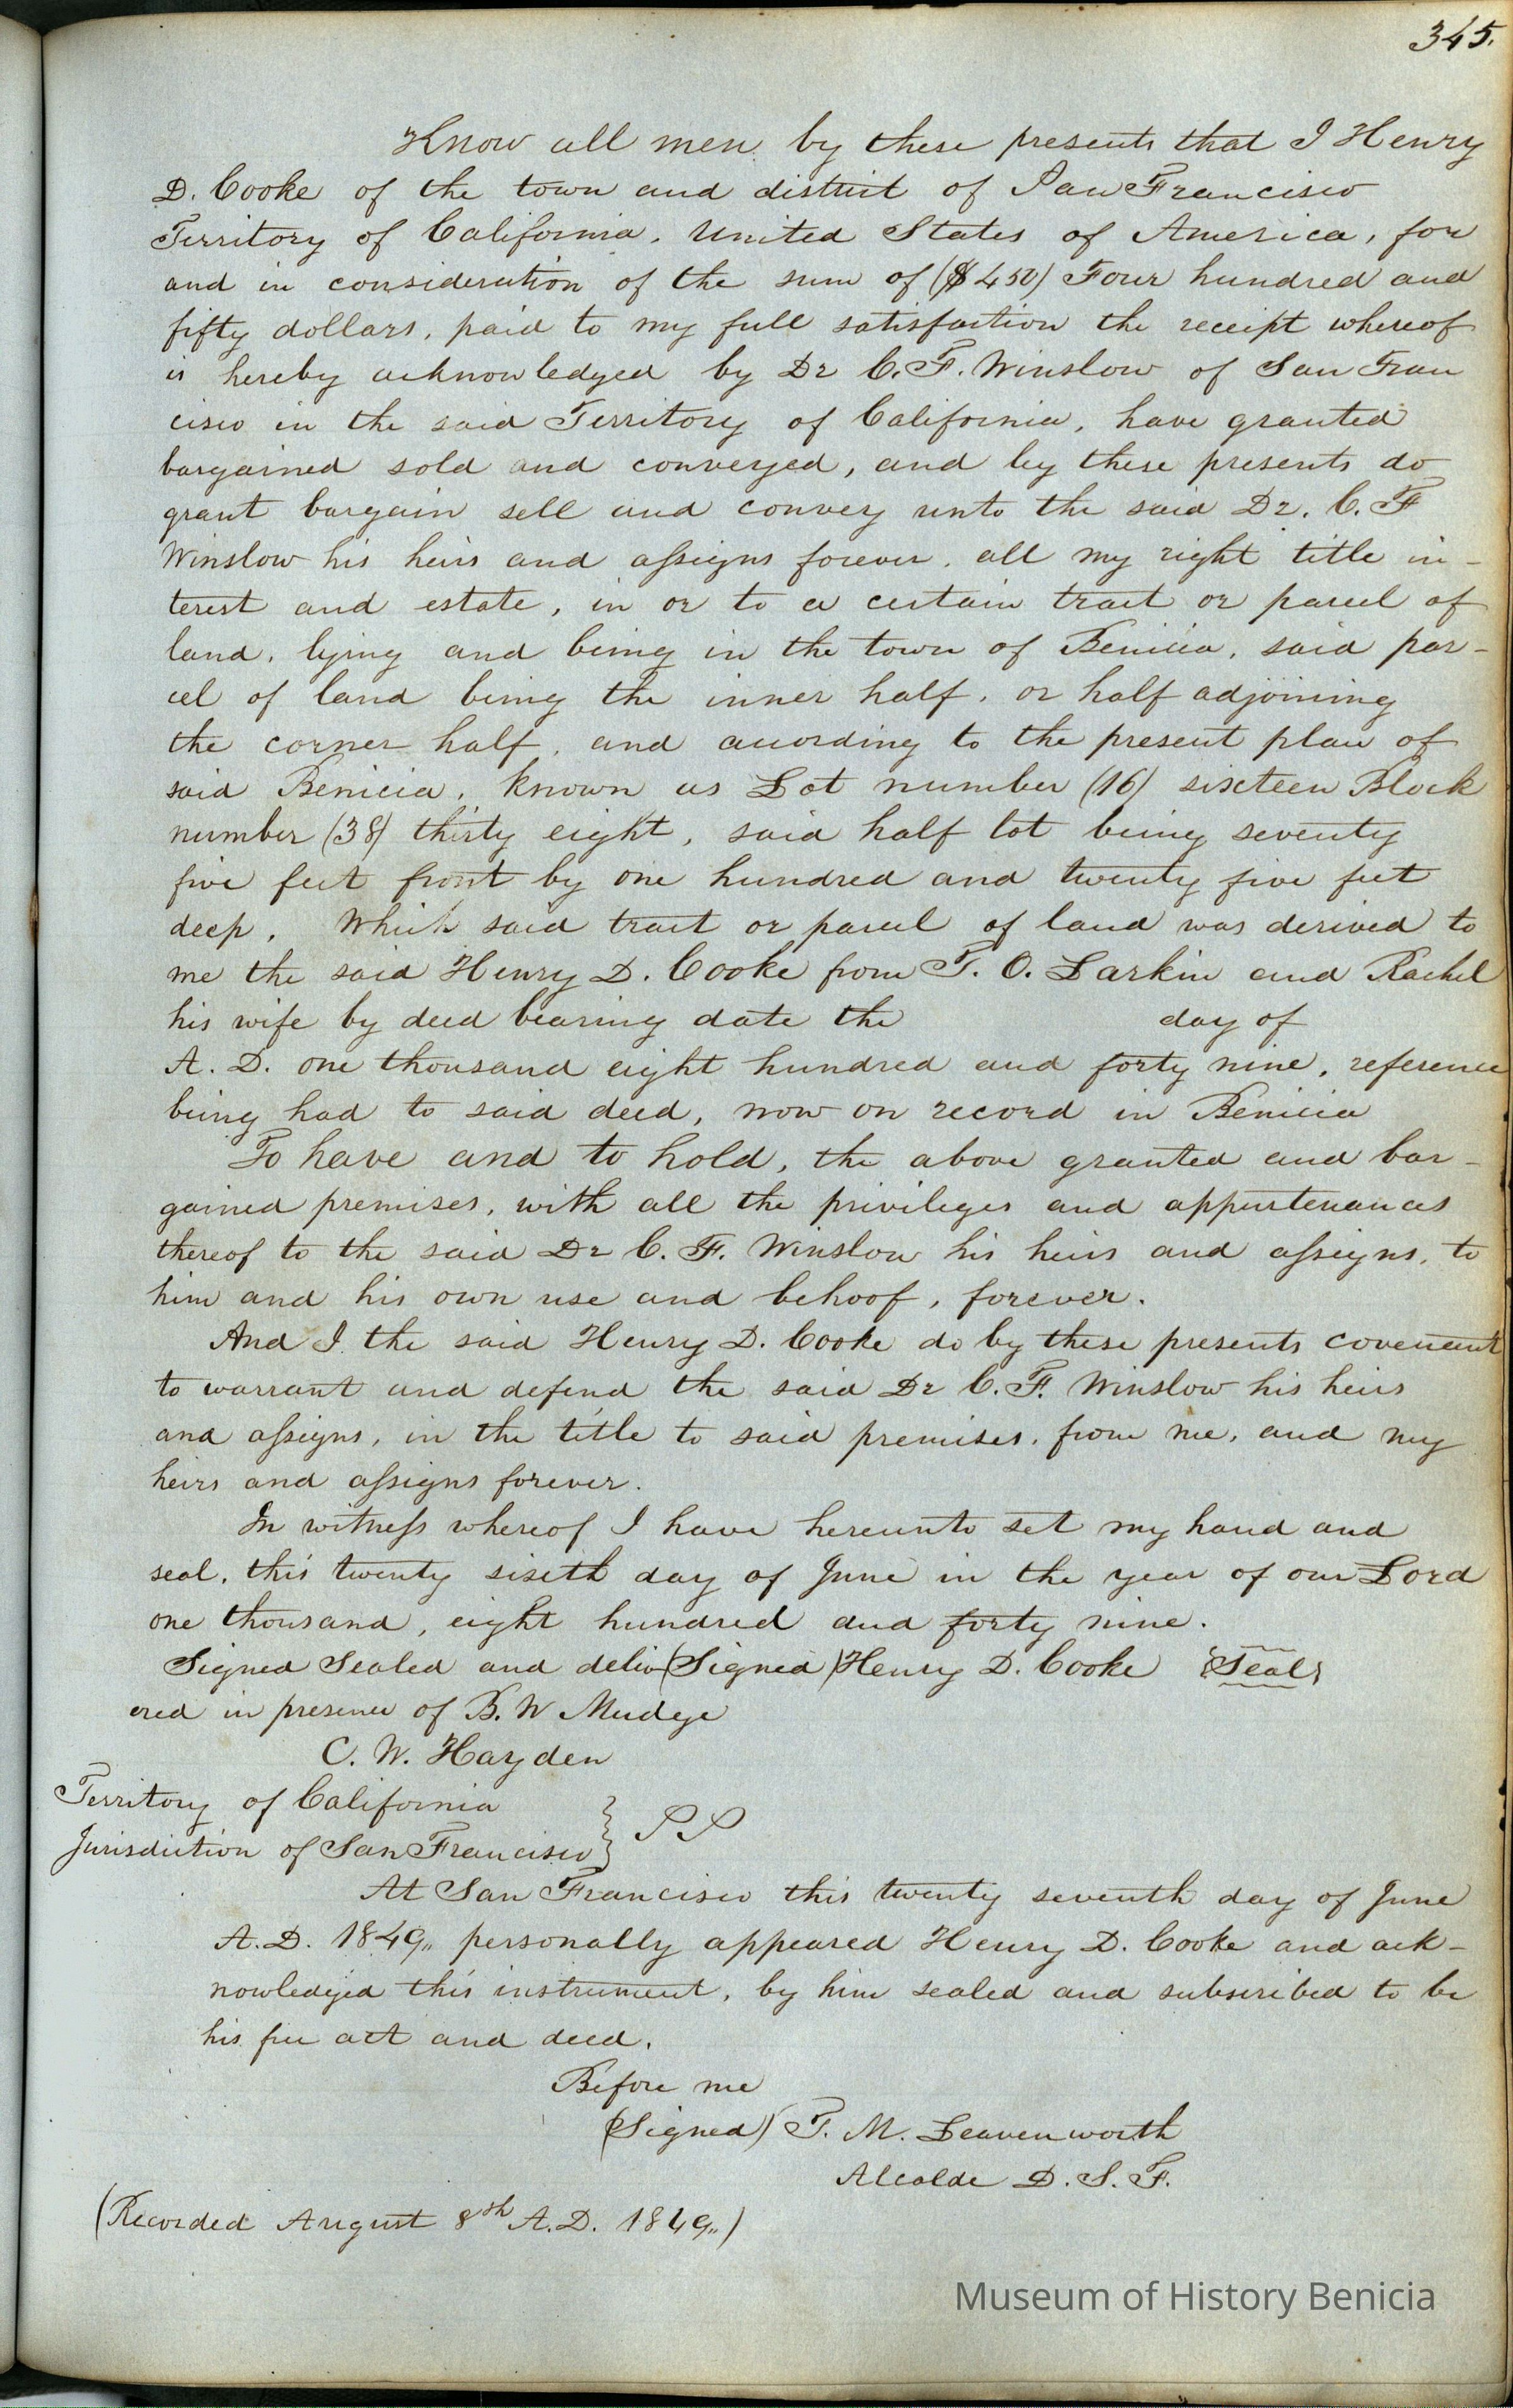 345.
Know all men by these presents that I Henry
D. Cooke of the town and district of San Francisco
Territory of California, United States of America, for
and in consideration of the sum of ($450) Four hundred and
fifty dollars, paid to my full satisfaction the receipt whereof
is hereby acknowledged by Dr C. F. Winslow of San Fran
cisco in the said Territory of California, have granted
bargained sold and conveyed, and by these presents do
grant bargain sell and convey unto the said Dr. C. F
Winslow his heirs and assigns forever, all my right title in-
terest and estate, in or to a certain tract or parcel of
land, lying and being in the town of Benicia, said par-
cel of land being the inner half, or half adjoining
the corner half, and according to the present plan of
said Benicia, known as Lot number (16) sixteen Block
number (38) thirty eight, said half lot being seventy
five feet front by one hundred and twenty five feet
deep. Which said tract or parcel of land was derived to
me the said Henry D. Cooke from T. O. Larkin and Rachel
his wife by deed bearing date the day of
A. D. one thousand eight hundred and forty nine, reference
being had to said deed, now on record in Benicia
To have and to hold, the above granted and bar-
gained premises, with all the privileges and appurtenances
thereof to the said Dr C. F. Winslow his heirs and assigns, to
him and his own use and behoof, forever.
And I the said Henry D. Cooke do by these presents covenant
to warrant and defend the said Dr C. F. Winslow his heirs
and assigns, in the title to said premises, from me, and my
heirs and assigns forever.
In witness whereof I have hereunto set my hand and
seal, this twenty sixth day of June in the year of our Lord
one thousand, eight hundred and forty nine.
Signed Sealed and deliv (Signed) Henry D. Cooke {Seal}
ered in presence of B. W Mudge
C. W. Hayden
Territory of California
Jurisdiction of San Francisco } SS
At San Francisco this twenty seventh day of June
A. D. 1849,, personally appeared Henry D. Cooke and ack-
nowledged this instrument, by him sealed and subscribed to be
his free act and deed.
Before me
(Signed) T. M. Leavenworth
Alcalde D. S. F.
(Recorded August 8th A. D. 1849,,)
Museum of History Benicia